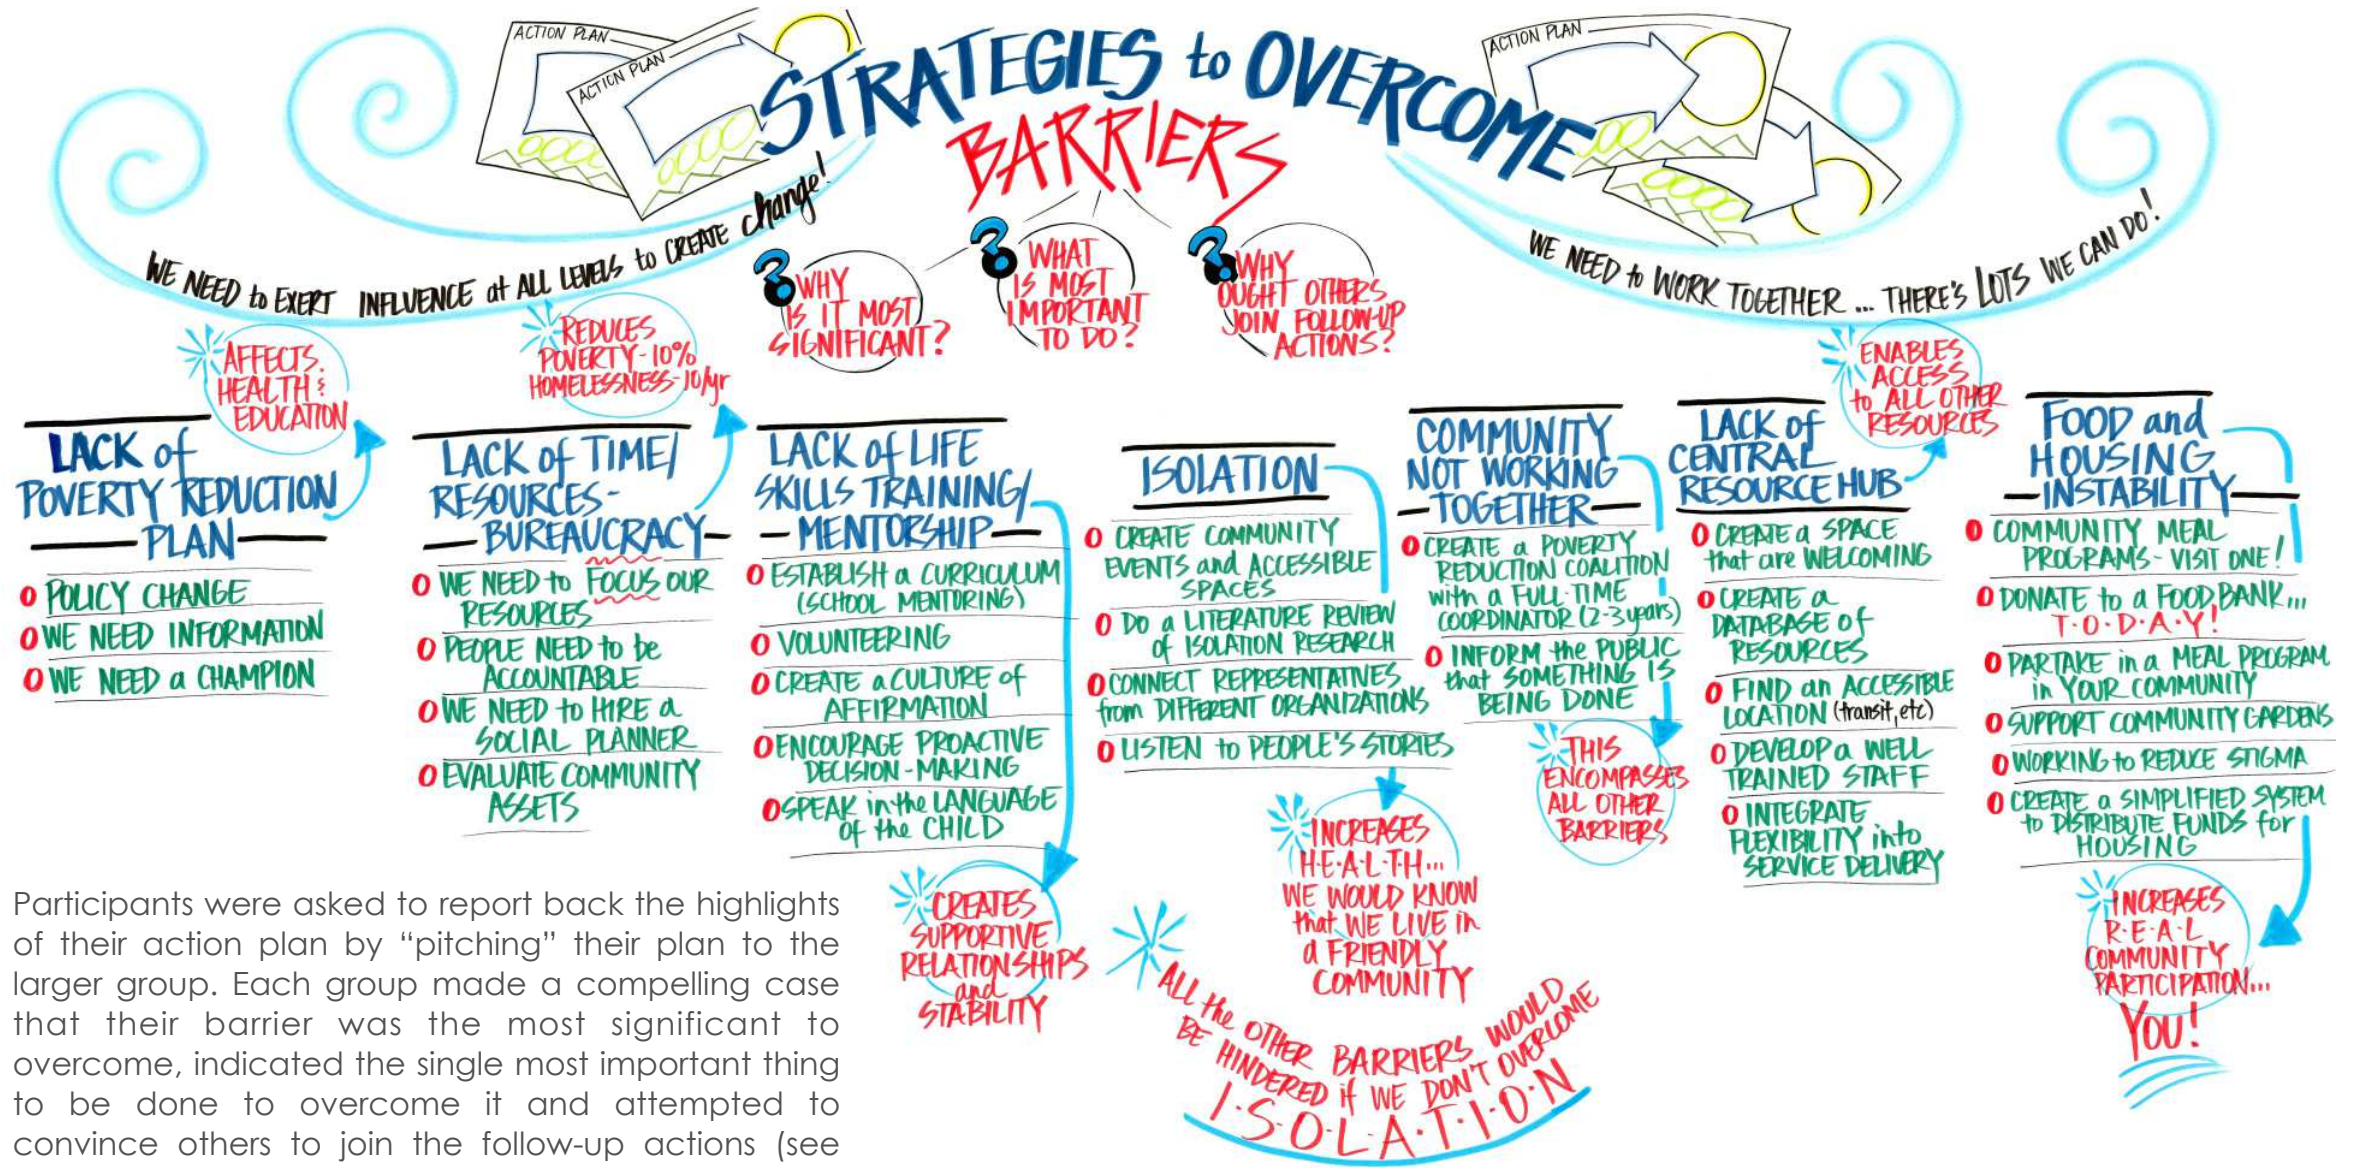 ACTION PLAN
ACTION PLAN
ACTION PLAN
STRATEGIES to OVERCOME
BARRIERS
WE NEED to EXERT INFLUENCE at ALL LEVELS to CREATE change!
WE NEED to WORK TOGETHER ... THERE'S LOTS WE CAN DO!
?
WHY
IS IT MOST
SIGNIFICANT?
?
WHAT
IS MOST
IMPORTANT
TO DO?
?
WHY
OUGHT OTHERS
JOIN FOLLOW-UP
ACTIONS?
AFFECTS.
HEALTH &
EDUCATION
LACK of
POVERTY REDUCTION
PLAN
O POLICY CHANGE
O WE NEED INFORMATION
O WE NEED a CHAMPION
REDUCES
POVERTY-10%
HOMELESSNESS-10/yr
LACK of TIME/
RESOURCES-
BUREAUCRACY
O WE NEED to FOCUS OUR
RESOURCES
O PEOPLE NEED to be
ACCOUNTABLE
O WE NEED to HIRE a
SOCIAL PLANNER
O EVALUATE COMMUNITY
ASSETS
LACK of LIFE
SKILLS TRAINING/
MENTORSHIP
O ESTABLISH a CURRICULUM
(SCHOOL MENTORING)
O VOLUNTEERING
O CREATE a CULTURE of
AFFIRMATION
O ENCOURAGE PROACTIVE
DECISION-MAKING
O SPEAK in the LANGUAGE
of the CHILD
CREATES
SUPPORTIVE
RELATIONSHIPS
and
STABILITY
ISOLATION
O CREATE COMMUNITY
EVENTS and ACCESSIBLE
SPACES
O DO a LITERATURE REVIEW
of ISOLATION RESEARCH
O CONNECT REPRESENTATIVES
from DIFFERENT ORGANIZATIONS
O LISTEN to PEOPLE'S STORIES
INCREASES
H·E·A·L·T·H...
WE WOULD KNOW
that WE LIVE in
a FRIENDLY
COMMUNITY
ALL the OTHER BARRIERS WOULD
BE HINDERED if WE DON'T OVERCOME
I·S·O·L·A·T·I·O·N
COMMUNITY
NOT WORKING
TOGETHER
O CREATE a POVERTY
REDUCTION COALITION
with a FULL-TIME
COORDINATOR (2-3 years)
O INFORM the PUBLIC
that SOMETHING IS
BEING DONE
THIS
ENCOMPASSES
ALL OTHER
BARRIERS
ENABLES
ACCESS
to ALL OTHER
RESOURCES
LACK of
CENTRAL
RESOURCE HUB
O CREATE a SPACE
that are WELCOMING
O CREATE a
DATABASE of
RESOURCES
O FIND an ACCESSIBLE
LOCATION (transit, etc)
O DEVELOP a WELL
TRAINED STAFF
O INTEGRATE
FLEXIBILITY into
SERVICE DELIVERY
FOOD and
HOUSING
INSTABILITY
O COMMUNITY MEAL
PROGRAMS - VISIT ONE!
O DONATE to a FOOD BANK...
T·O·D·A·Y!
O PARTAKE in a MEAL PROGRAM
in YOUR COMMUNITY
O SUPPORT COMMUNITY GARDENS
O WORKING to REDUCE STIGMA
O CREATE a SIMPLIFIED SYSTEM
to DISTRIBUTE FUNDS for
HOUSING
INCREASES
R·E·A·L
COMMUNITY
PARTICIPATION...
YOU!
Participants were asked to report back the highlights
of their action plan by “pitching” their plan to the
larger group. Each group made a compelling case
that their barrier was the most significant to
overcome, indicated the single most important thing
to be done to overcome it and attempted to
convince others to join the follow-up actions (see